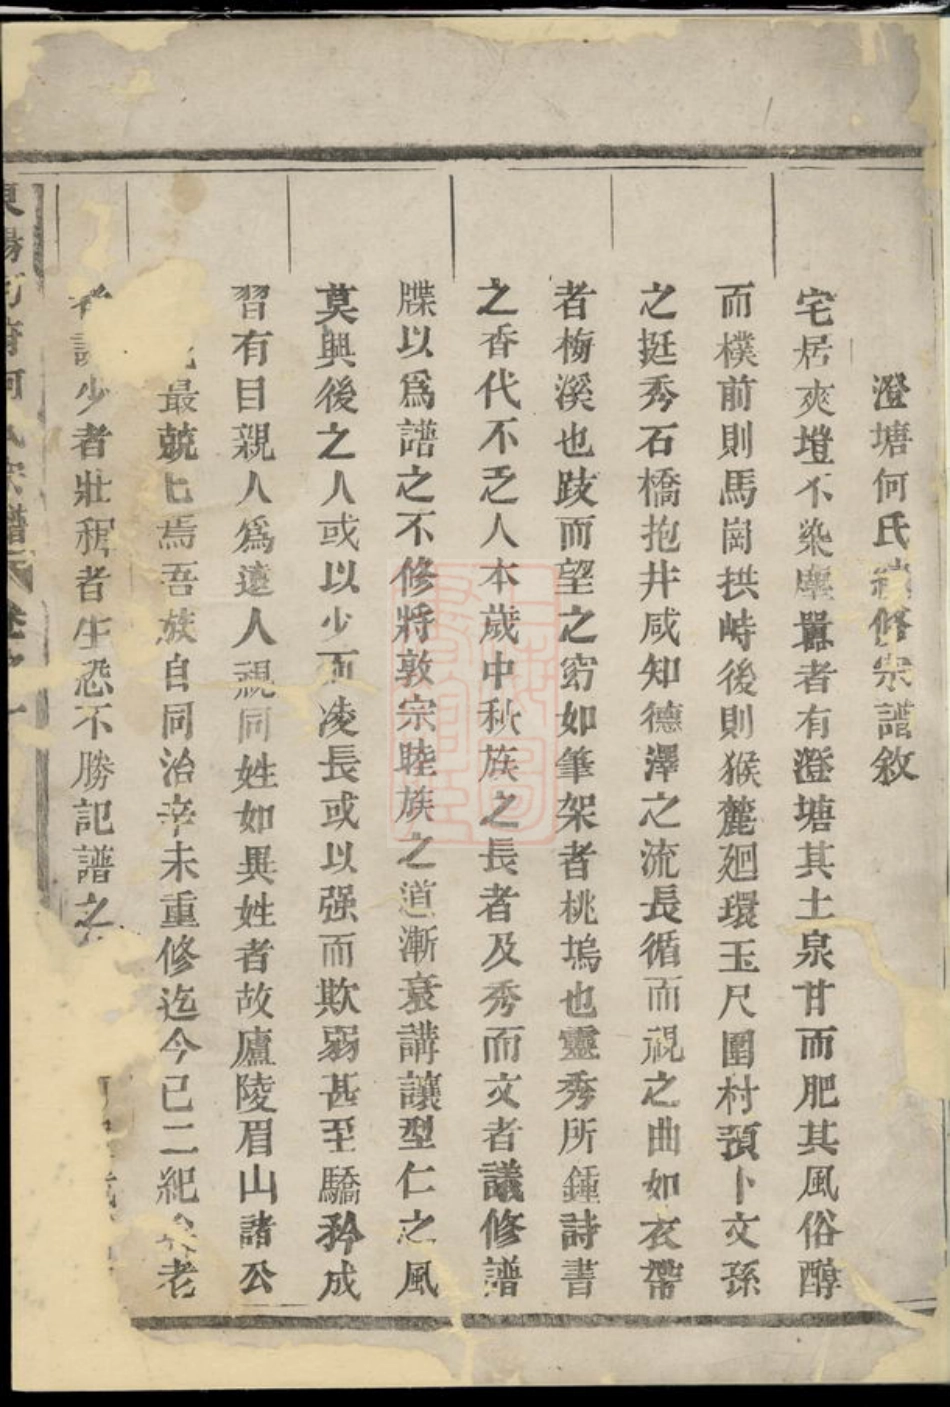 澄塘何氏續修宗譜敘
宅居爽塏不染塵囂者有澄塘其土泉甘而肥其風俗醇
而樸前則馬崗拱峙後則猴麓廻環玉尺圍村預卜文孫
之挺秀石橋抱井咸知德澤之流長循而視之曲如衣帶
者梅溪也跂而望之窍如筆架者桃塢也靈秀所鍾詩書
之香代不乏人本歲中秋族之長者及秀而文者議修譜
牒以爲譜之不修將敦宗睦族之道漸衰講讓型仁之風
莫興後之人或以少而凌長或以强而欺弱甚至驕矜成
習有目親人爲遠人視同姓如異姓者故廬陵眉山諸公
最兢匕焉吾族自同治辛未重修迄今已二紀矣老
者謝少者壯稺者生恐不勝記譜之
東陽何府何氏宗譜 卷之一